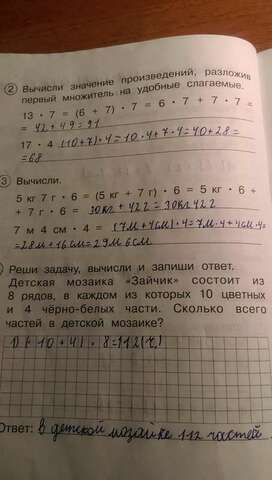 2 Вычисли значение произведений, разложив
первый множитель на удобные слагаемые.
13 · 7 = (6 + 7) · 7 = 6 · 7 + 7 · 7 =
= 42 + 49 = 91
17 · 4 (10+7)·4=10·4+7·4=40+28=
=68
3 Вычисли.
5 кг 7 г · 6 = (5 кг + 7 г) · 6 = 5 кг · 6 +
+ 7 г · 6 = 30кг+42г=30кг 42г
7 м 4 см · 4 = (7м+4см)·4=7м·4+4см·4=
=28м+16см=29м 6см
Реши задачу, вычисли и запиши ответ.
Детская мозаика «Зайчик» состоит из
8 рядов, в каждом из которых 10 цветных
и 4 чёрно-белых части. Сколько всего
частей в детской мозаике?
1) (10+4)·8=112(ч)
Ответ: в детской мозайке 112 частей.